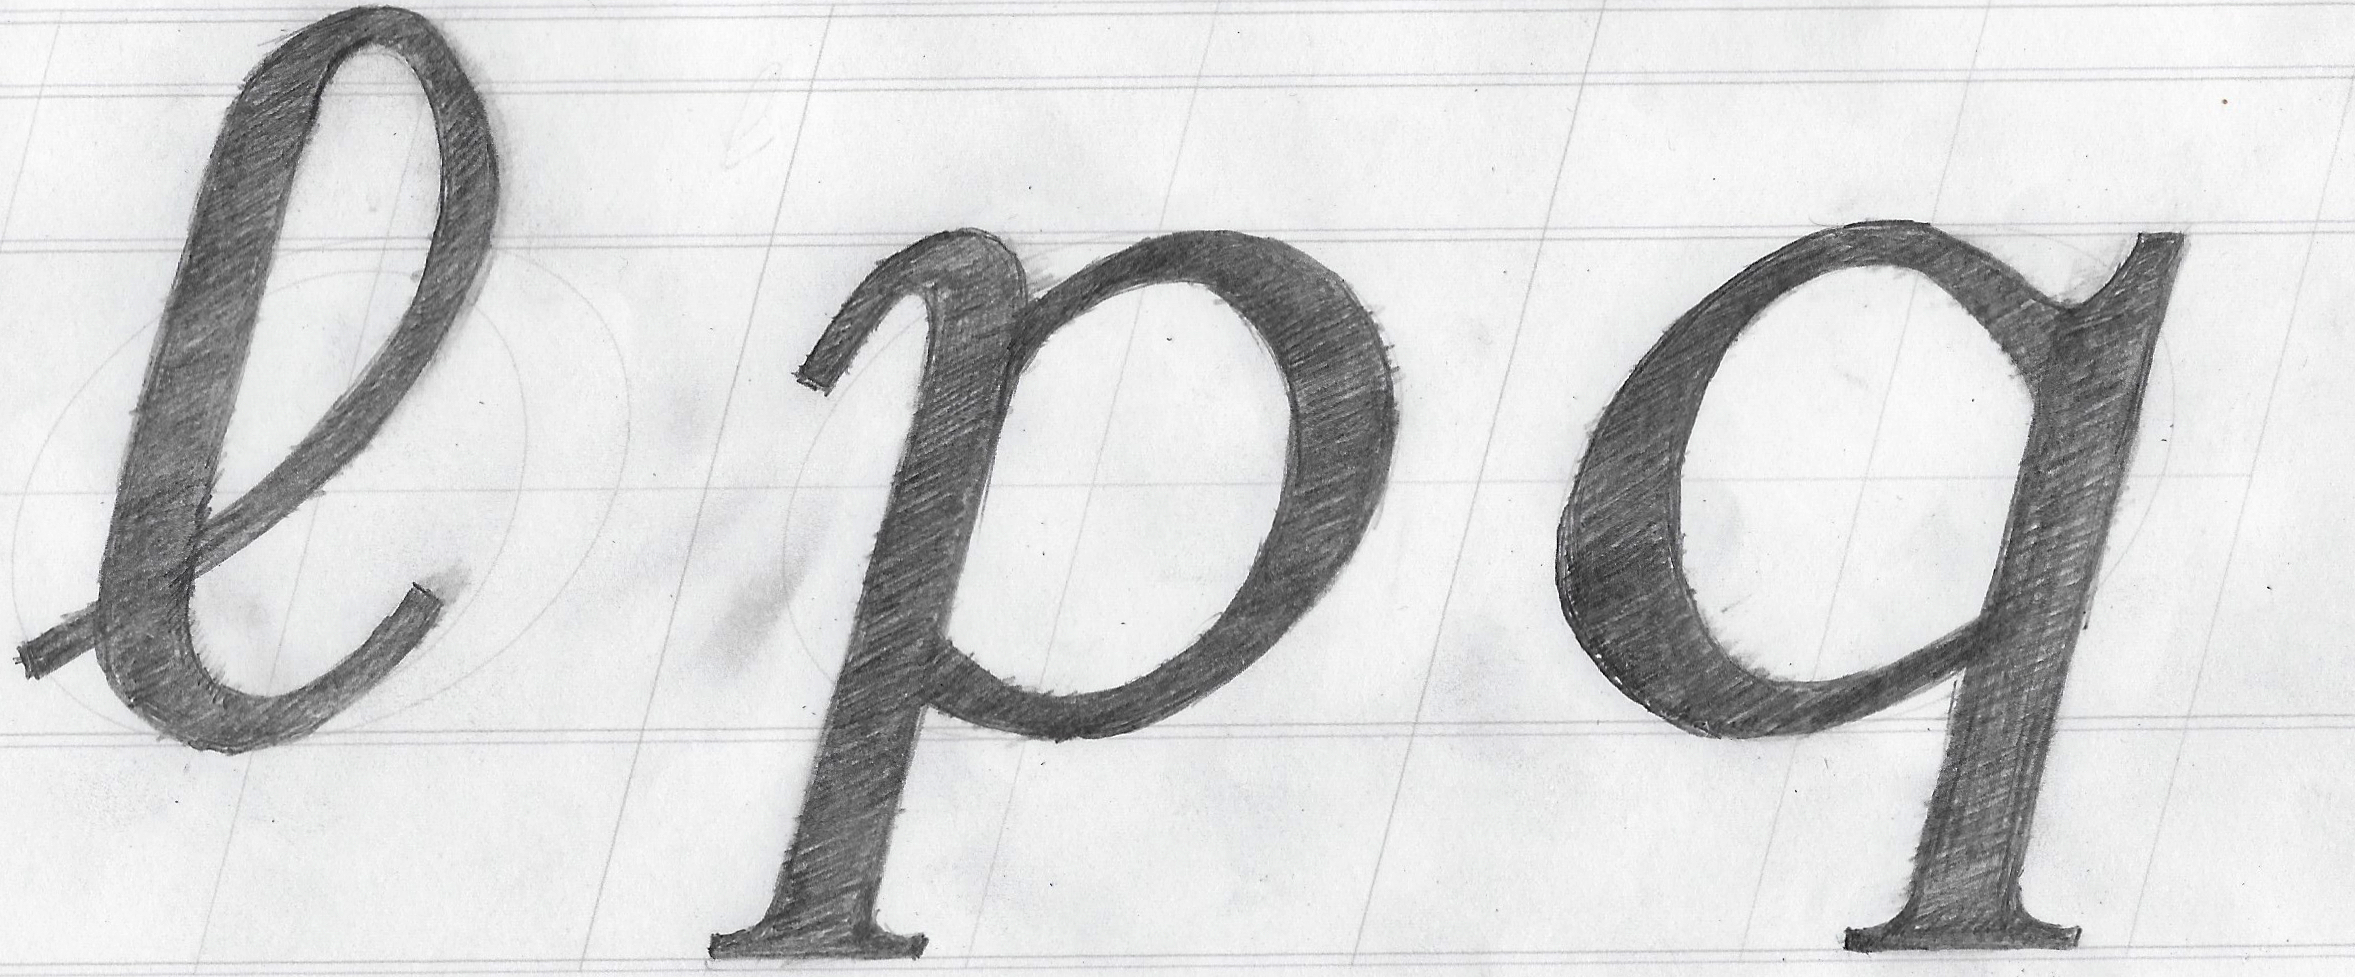 ℓpq